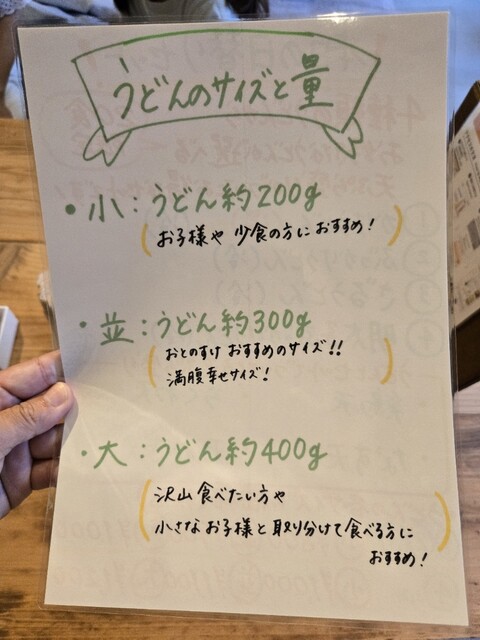 うどんのサイズと量
・小：うどん約200g
（お子様や少食の方におすすめ！）
・並：うどん約300g
（おとのすけ おすすめのサイズ!!
満腹幸せサイズ！）
・大：うどん約400g
（沢山食べたい方や
小さなお子様と取り分けて食べる方に
おすすめ！）